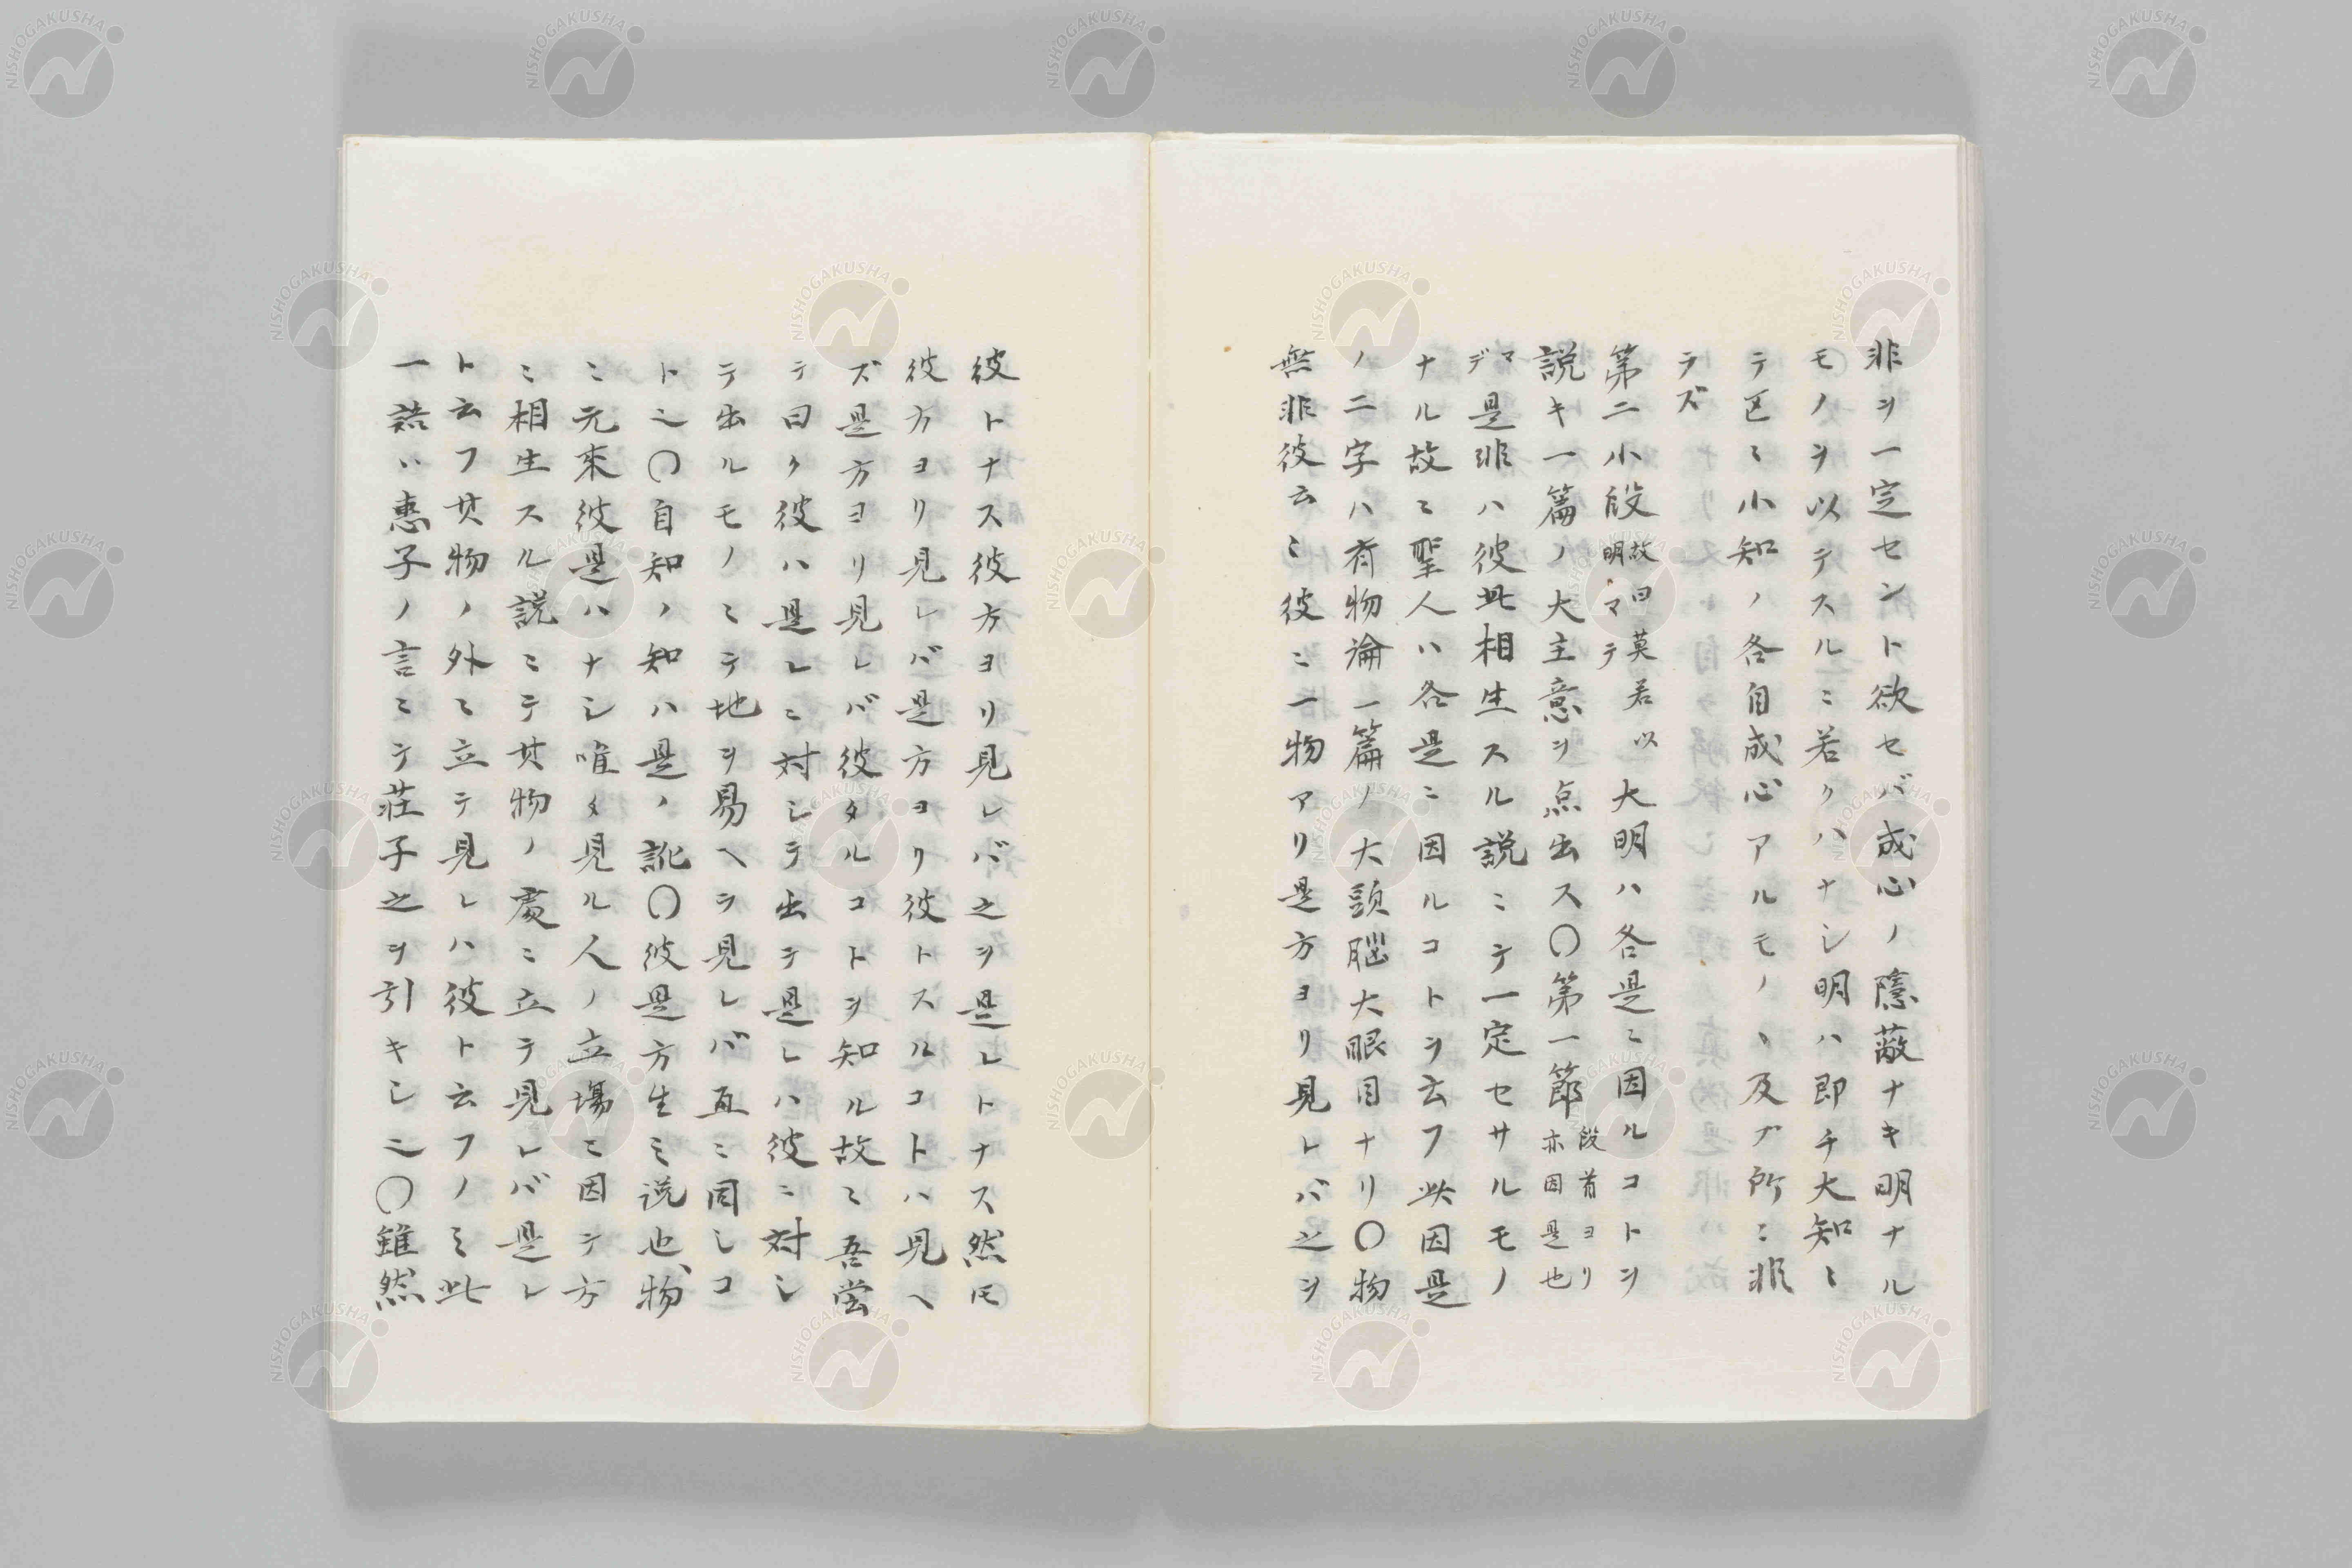 非ヲ一定セント欲セバ成心ノ隱蔽ナキ明ナル
モノヲ以テスルニ若クハナシ明ハ即チ大知ニ
テ区ミ小知ノ各自成心アルモノヽ及ブ所ニ非
ラズ
第二小段故曰莫若以明マテ大明ハ各是ニ因ルコトヲ
説キ一篇ノ大主意ヲ点出ス〇第一節段首ヨリ亦因是也
マデ是非ハ彼此相生スル説ニテ一定セサルモノ
ナル故ニ聖人ハ各是ニ因ルコトヲ云フ此因是
ノ二字ハ斉物論一篇ノ大頭腦大眼目ナリ〇物
無非彼云ミ彼ニ一物アリ是方ヨリ見レバ之ヲ
彼トナス彼方ヨリ見レバ之ヲ是レトナス然𪜈
彼方ヨリ見レバ是方ヨリ彼トスルコトハ見ヘ
ズ是方ヨリ見レバ彼タルコトヲ知ル故ニ吾嘗
テ曰ク彼ハ是レニ対シテ出テ是レハ彼ニ対シ
テ出ルモノニテ地ヲ易ヘテ見レバ直ニ同シコ
ト也〇自知ノ知ハ是ノ訛〇彼是方生ミ説也、物
ニ元來彼是ハナシ唯タ見ル人ノ立場ニ因テ方
ニ相生スル説ニテ其物ノ處ニ立テ見レバ是レ
ト云フ其物ノ外ニ立テ見レハ彼ト云フノミ此
一語ハ惠子ノ言ニテ荘子之ヲ引キシ也〇雖然